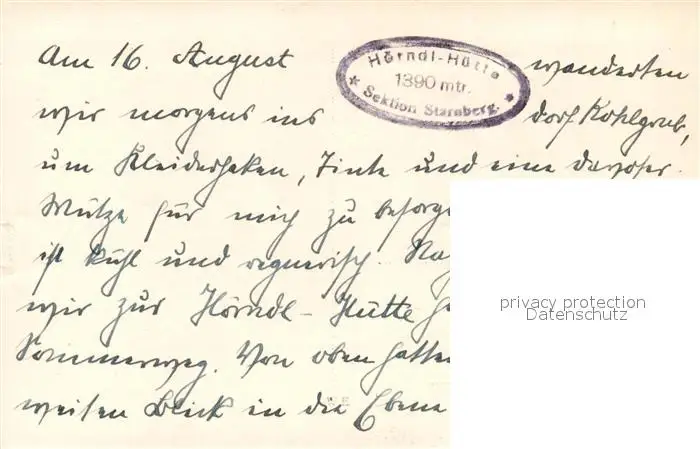 Am 16. August wanderten
Hörndl-Hütte
1390 mtr.
Sektion Starnberg.
wir morgens ins dorf Kohlgrub,
um Kleiderhaken, Tinte und eine davoser
Mütze für mich zu besorge
ist kühl und regnerisch. Na
wir zur Hörndl-Hütte
Sommerweg. Von oben hatte
weiten Blick in die Ebene
privacy protection
Datenschutz